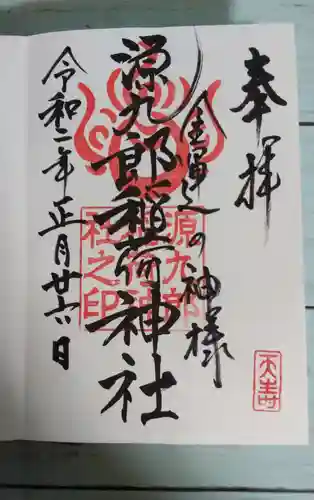 奉拝
金運之の神様
源九郎稲荷神社
令和二年正月廿六日
源九郎
稲荷神
社之印
天寿